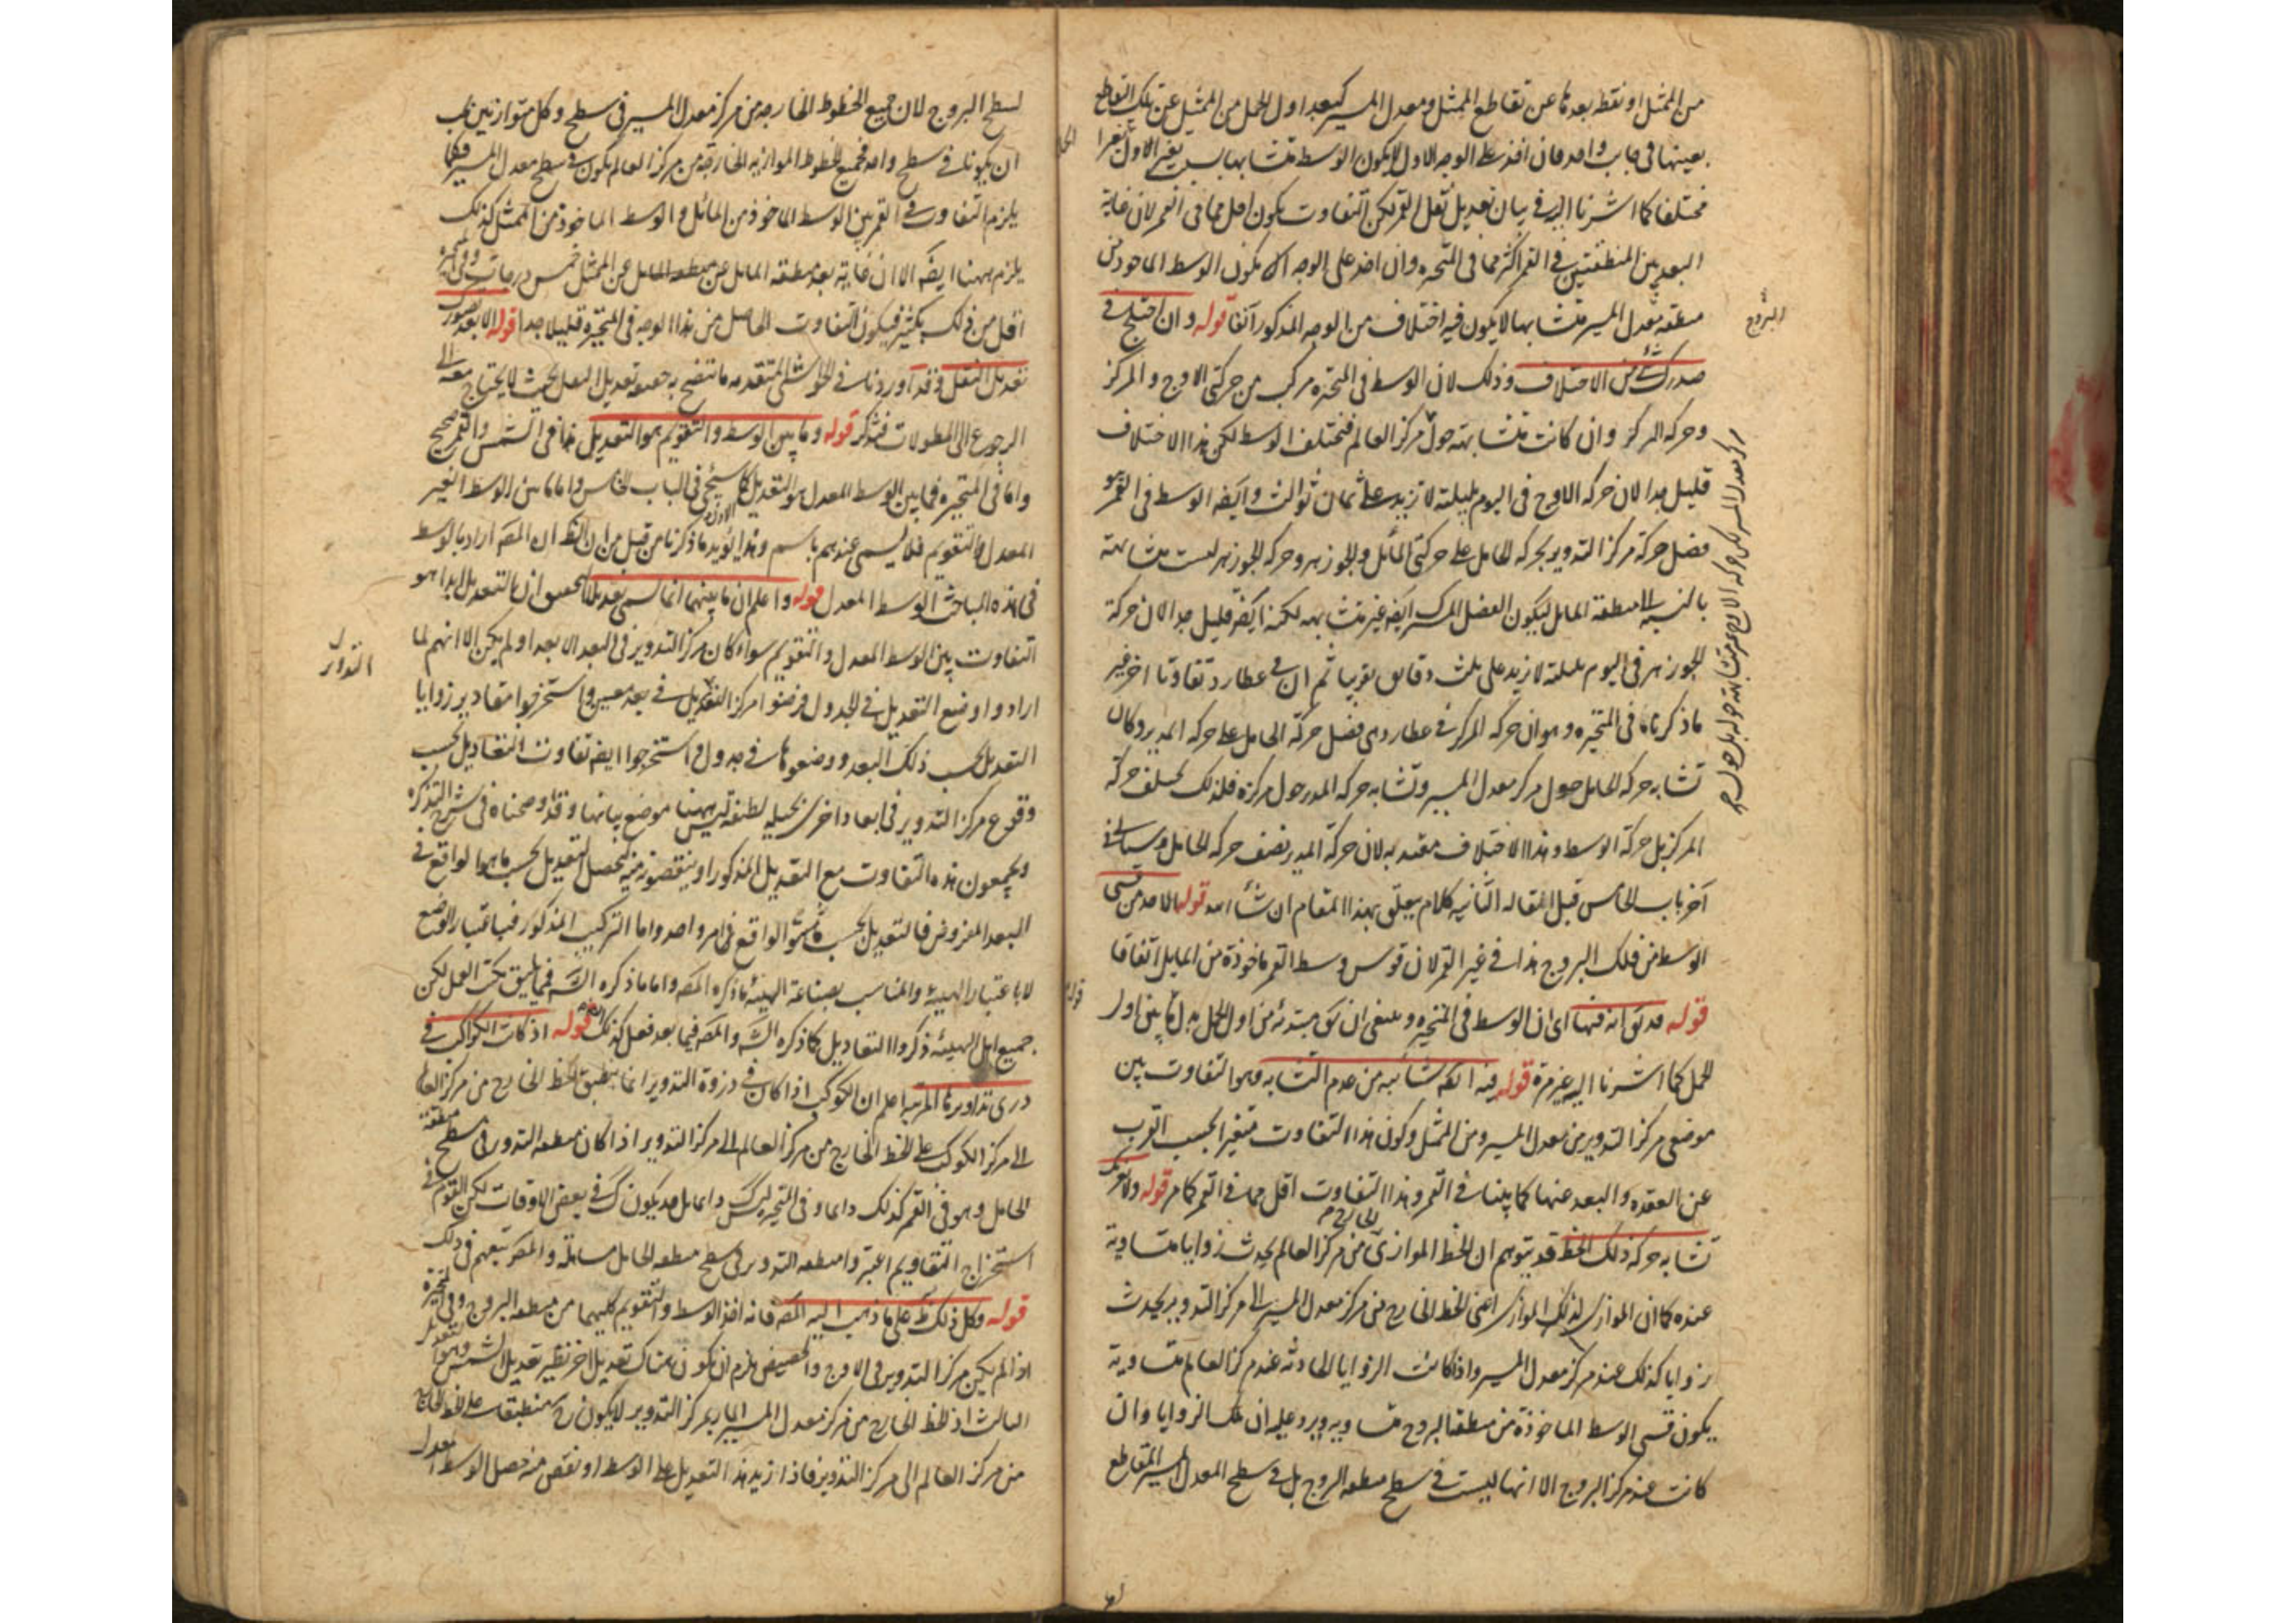 من الممثل او نقطة بعدها عن تقاطع الممثل ومعدل المسير كبعد اول الحمل من الممثل عن تلك التقاطع
بعينها في جانب واحد فان اخذ على الوجه الاول لا يكون الوسط متشابها
مختلفا كما اشرنا اليه في بيان تعديل نقل القمر لكن التفاوت يكون اقل مما في القمر لان غاية
البعد بين المنطقتين في القمر اكثر مما في المتحيرة وان اخذ على الوجه يكون الوسط الماخوذ من
منطقة معدل المسير متشابها لا يكون فيه اختلاف من الوجه المذكور آنفا قوله وان اختلج في
صدرك شئ من الاختلاف وذلك لان الوسط في المتحيرة مركب من حركتى الاوج والمركز
وحركة المركز وان كانت متشابهة حول مركز العالم فيختلف الوسط لكن هذا الاختلاف
قليل جدا لان حركة الاوج في اليوم بليلته لا تزيد على ثمان ثوالث وايضه الوسط في القمر هو
فضل حركة مركز التدوير بحركة الحامل على حركتى المائل والجوزهر وحركة الجوزهر ليست متشابهة
بالنسبة الى منطقة المايل فيكون الفضل المركب ايضه غير متشابهه لكنه ايضه قليل جدا لان حركة
الجوزهر في اليوم بليلته لا تزيد على ثلث دقايق تقريبا ثم ان في عطارد تفاوتا اخر غير
ما ذكرناه في المتحيرة وهو ان حركة المركز في عطارد هى فضل حركة الحامل على حركة المدير وكان
تشابه حركة الحامل حول مركز معدل المسير وتشابه حركة المدير حول مركزه فلذلك يختلف حركة
المركز بل حركة الوسط وهذا الاختلاف معتد به لان حركة المدير نصف حركة الحامل وسياتى في
آخر باب الخامس قبل المقالة الثانيه كلام يتعلق بهذا المقام ان شاء الله قوله الاحد من قسى
الوسط من فلك البروج هذا في غير القمر لان قوس وسط القمر ماخوذة من المايل اتفاقا
قوله قد انه فيها اى ان الوسط في المتحيره وينبغى ان مبتدئه من اول الحمل بدل ما بين اول
الحمل كما اشرنا اليه غير مرة قوله فيه شائبه من عدم التشابه وهو التفاوت بين
موضعى مركز التدوير من معدل المسير ومن الممثل وكون هذا التفاوت متغيرا بحسب القرب
عن العقده والبعد عنها كما بينا في القمر وهذا التفاوت اقل مما في القمر كما مر قوله
تشابه حركة ذلك الخط قد يتوهم ان الخط الموازى من مركز العالم يحدث زوايا متساوية
عنده كما ان الموازى لذلك الموازى اعنى الخط الخارج من مركز معدل المسير الى مركز التدوير يحدث
زوايا كذلك عند مركز معدل المسير واذا كانت الزوايا الحادثه عند مركز العالم متساوية
يكون قسى الوسط الماخوذة من منطقة البروج متساويه ويرد عليه ان تلك الزوايا وان
كانت عند مركز البروج الا انها ليست في سطح منطقه البروج بل في سطح المعدل المسير المتقاطع
البروج
مركز معدل المسير لكن حركه الاوج غير متشابهة حوله بل حول
لسطح البروج لان جميع الخطوط الخارجه من مركز معدل المسير في سطح وكل متوازيين يجب
ان يكونا في سطح واحد فجميع الخطوط الموازيه الخارجة من مركز العالم يكون في سطح معدل المسير فكما
يلزم التفاوت في القمر بين الوسط الماخوذ من المائل والوسط الماخوذ من الممثل كذلك
يلزم ههنا ايضه الا ان غاية بعد منطقة المايل عن الممثل خمس درجات وفى المتحيرة
اقل من ذلك بكثير فيكون التفاوت الحاصل من هذا الوجه في المتحيره قليلا جدا قوله الا بعد تصور
تعديل النقل وقد اوردنا في الحواشى المتقدمه ما تتضح به حقيقة تعديل النقل بحيث لا يحتاج معه الى
الرجوع الى المطولات فتذكر قوله وما بين الوسط والتقويم هو التعديل هذا في الشمس والقمر صحيح
واما في المتحيره فما بين الوسط المعدل هو التعديل كما سيجئ في الباب الخامس واما ما بين الوسط الغير
المعدل والتقويم فلا يسمى عندهم باسم وهذا يؤيد ما ذكرنا من قبل من ان الظ ان المصه اراد بالوسط
في هذه المباحث الوسط المعدل قوله واعلم ان ما بينهما انما يسمى تعديلا التعديل ابدا هو
التفاوت بين الوسط المعدل والتقويم سواء كان مركز التدوير في البعد الابعد او لم يكن الا انهم لما
ارادوا وضع التعديل في الجدول فرضوا مركز في بعد معين واستخرجوا مقادير زوايا
التعديل بحسب ذلك البعد ووضعوها في جدول واستخرجوا ايضه تفاوت التعاديل بحسب
وقوع مركز التدوير في ابعاد اخرى بحيله لطيفه ليس ههنا موضع بيانها وقد اوضحناه في شرح التذكره
ويجمعون هذه التفاوت مع التعديل المذكور او ينقصونه منه ليحصل التعديل بحسب ما هو الواقع في
البعد المفروض فالتعديل بحسب الواقع في امر واحد واما التركيب المذكور فباعتبار الوضع
لا باعتبار الهيئة والمناسب بصناعة الهيئة ما ذكره المصه واما ما ذكره الشه فمما يليق بكتب العمل لكن
جميع اهل الهيئة ذكروا التعاديل كما ذكره الشه والمصه فيما بعد فعل كذلك قوله اذ كانت الكواكب في
ذرى تداويرها المرئية اعلم ان الكوكب اذا كان في ذروة التدوير انما ينطبق الخط الخارج من مركز العالم
الى مركز الكوكب على الخط الخارج من مركز العالم الى مركز التدوير اذا كان منطقه التدوير في سطح منطقة
الحامل وهو في القمر كذلك دايما وفى المتحيره ليس كذلك دايما بل قد يكون في بعض الاوقات لكن القوم في
استخراج التقاويم اعتبروا منطقه التدوير في سطح منطقه الحامل مساهلة والمصه تبعهم في ذلك
قوله وكل ذلك على ما ذهب اليه المصه فانه اخذ الوسط والتقويم كليهما من منطقه البروج وفى المتحيرة
اذا لم يكن مركز التدوير في الاوج والحضيض يلزم ان يكون هناك تعديل اخر نظير تعديل الشمس وهو التعديل
الثالث اذ الخط الخارج من مركز معدل المسير المار بمركز التدوير لا يكون منطبقا على الخط الخارج
من مركز العالم الى مركز التدوير فاذا زيد هذا التعديل على الوسط او نقص منه حصل الوسط المعدل
التدوير